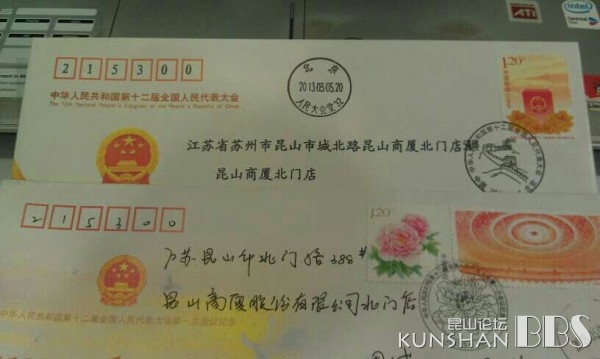 215300
中华人民共和国第十二届全国人民代表大会
The 12th National People's Congress of the People's Republic of China
北京
2013.03.05.20
人民大会堂
1.20
江苏省苏州市昆山市城北路昆山商厦北门店
昆山商厦北门店
215300
中华人民共和国第十二届全国人民代表大会第一次会议纪念
1.20
江苏昆山市北门路388#
昆山商厦股份有限公司北门店
ATI
intel
昆山论坛
KUNSHAN BBS